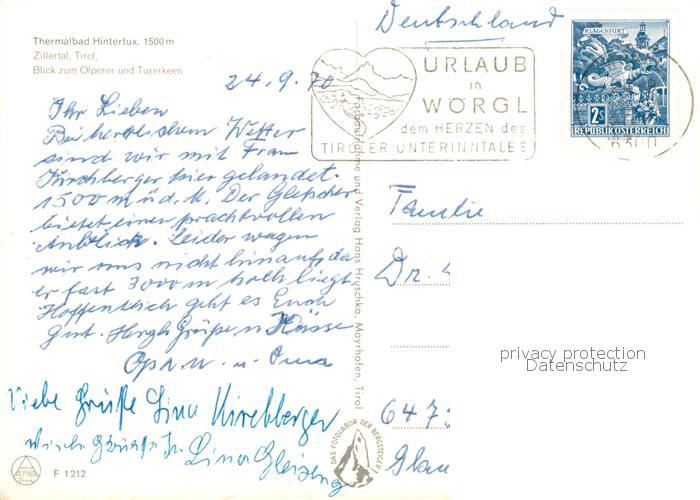 Thermalbad Hintertux, 1500 m
Zillertal, Tirol,
Blick zum Olperer und Tuxerkees
24.9.70
Ihr Lieben
Bei herrlichem Wetter
sind wir mit Frau
Kirchberger hier gelandet.
1500 m ü.d.M. Der Gletscher
bietet einen prachtvollen
Anblick. Leider wagen
wir uns nicht hinauf, da
er fast 3000 m hoch liegt
Hoffentlich geht es Euch
gut. Herzl. Grüße u Küsse
Opa u. Oma
Liebe Grüße Lina Kirchberger
Lina
F 1212
Fotoaufnahme und Verlag Hans Hruschka, Mayrhofen, Tirol
DAS FOTOLABOR DER BERGSTEIGER
Deutschland
URLAUB
in
WÖRGL
dem HERZEN des
TIROLER UNTERINNTALES
KLAGENFURT
2S
REPUBLIK ÖSTERREICH
6300
Familie
Dr.
647
Glau
privacy protection
Datenschutz